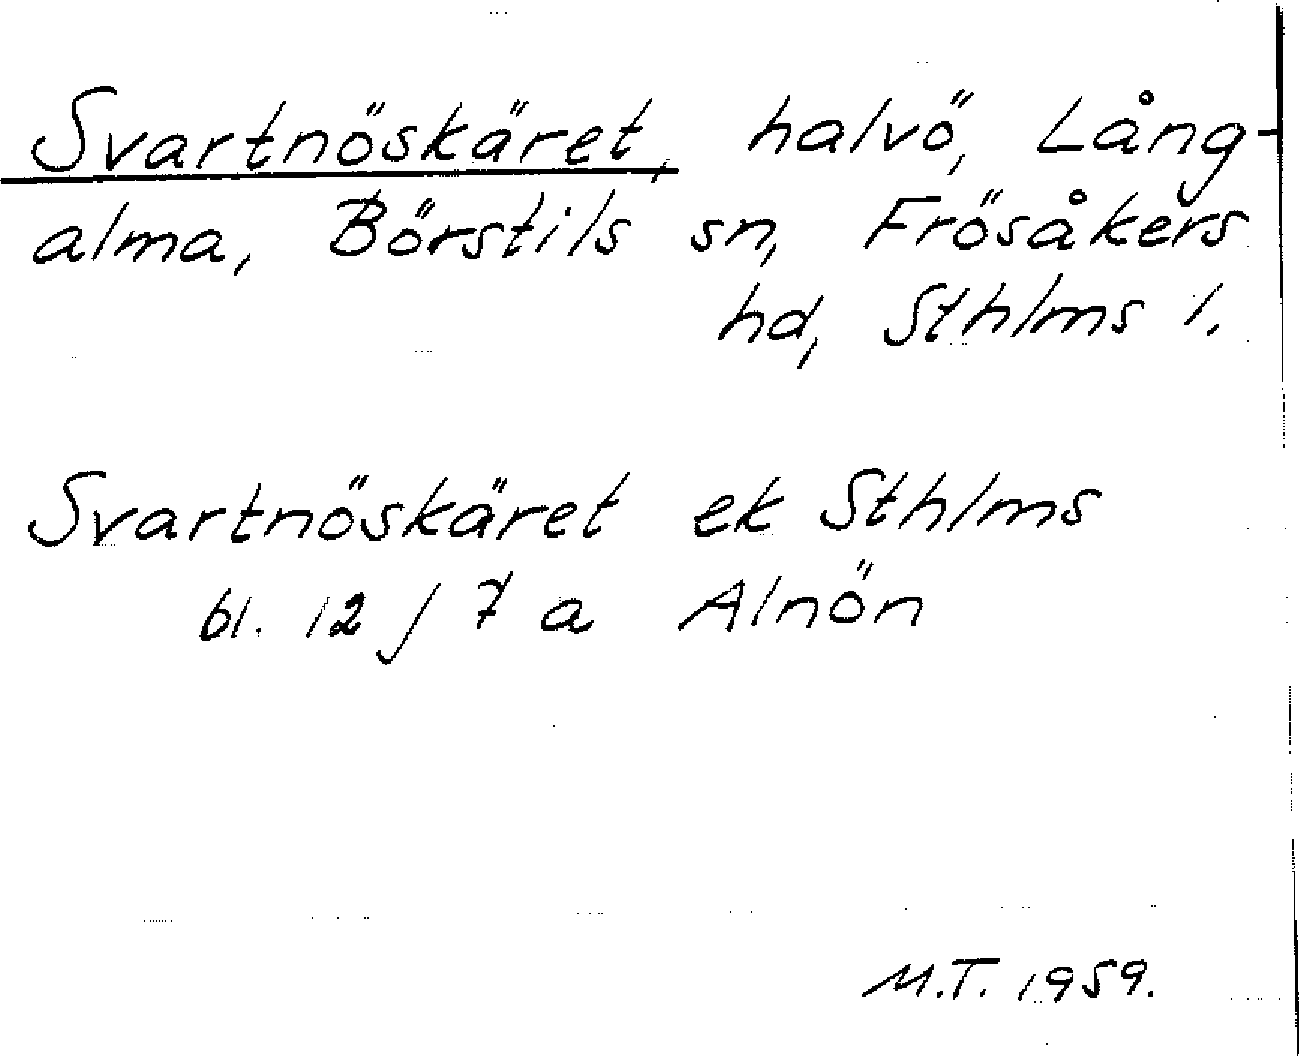 Svartnöskäret, halvö, Lång-
alma, Börstils sn, Frösåkers
hd, Sthlms l.
Svartnöskäret ek Sthlms
bl. 12 j 7 a Alnön
M.T. 1959.